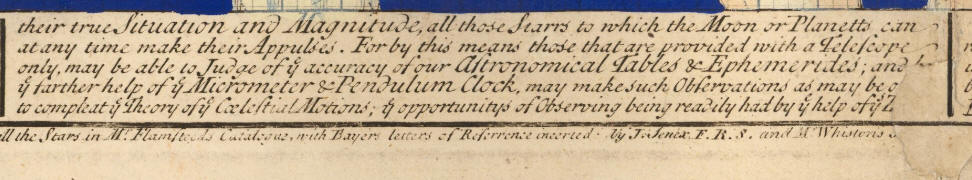 their true Situation and Magnitude, all those Starrs to which the Moon or Planetts can
at any time make their Appulses. For by this means those that are provided with a Telescope
only, may be able to Judge of ẏ accuracy of our Astronomical Tables & Ephemerides; and
ẏ farther help of ẏ Micrometer & Pendulum Clock, may make such Observations as may be
to compleat ẏ Theory of ẏ Cœlestial Motions; ẏ opportunitys of Observing being readily had by ẏ help of ẏ Z
all the Stars in Mr. Flamsteeds Catalogue, with Bayers letters of Referrence incerted. By I. Senex. F. R. S. and Mr Whistons